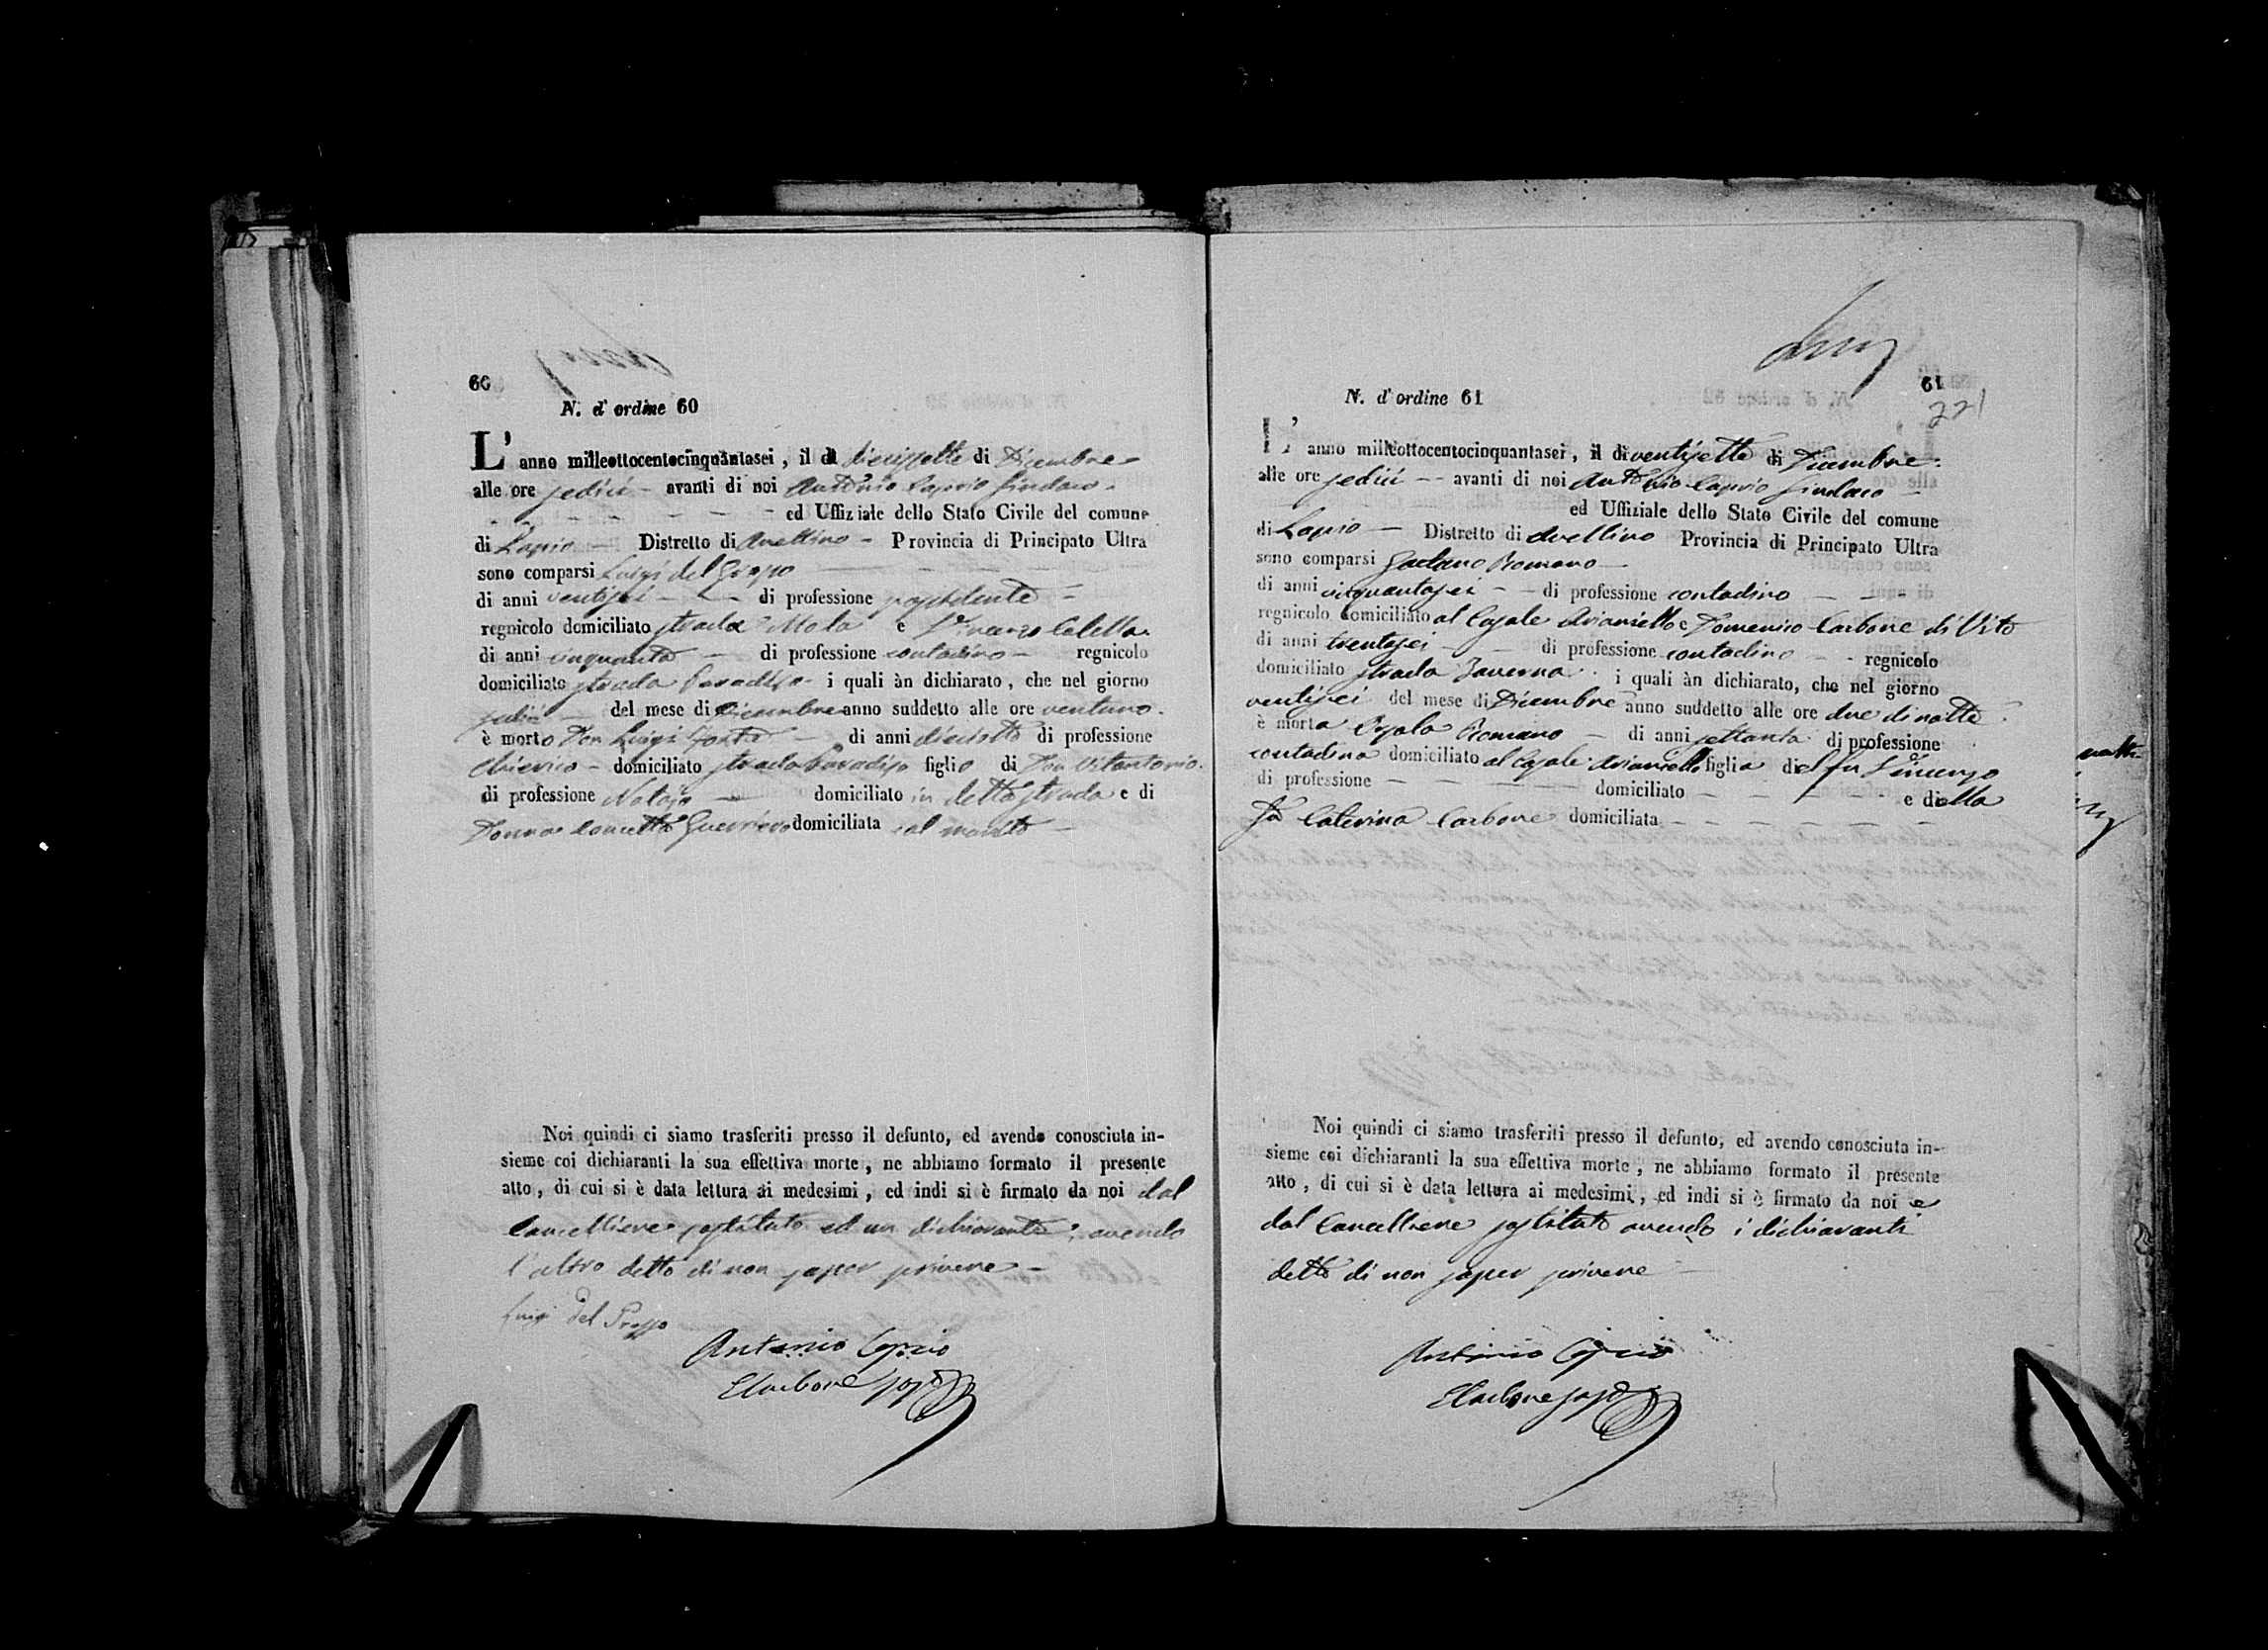 60
N. d'ordine 60
L'anno milleottocentocinquantasei, il dì diecissette di Dicembre
alle ore sedici - avanti di noi Antonio Caprio Sindaco
ed Uffiziale dello Stato Civile del comune
di Lapio - Distretto di Avellino - Provincia di Principato Ultra
sono comparsi Luigi del Grosso
di anni ventisei - di professione possidente -
regnicolo domiciliato strada Mola e Vincenzo Colella
di anni cinquanta - di professione contadino - regnicolo
domiciliato strada Paradiso - i quali àn dichiarato, che nel giorno
sedici - del mese di Dicembre anno suddetto alle ore ventuno.
è morto Don Luigi Forte - di anni dieciotto di professione
Chierico - domiciliato strada Paradiso figlio di Don Vitantonio
di professione Notajo - domiciliato in detta strada e di
Donna Concetta Guerriero domiciliata col marito -
Noi quindi ci siamo trasferiti presso il defunto, ed avendo conosciuta in-
sieme coi dichiaranti la sua effettiva morte, ne abbiamo formato il presente
atto, di cui si è data lettura ai medesimi, ed indi si è firmato da noi dal
Cancelliere sostituto ed un dichiarante, avendo
l'altro detto di non saper scrivere -
Luigi del Grosso
Antonio Caprio
Carbone sost
61
221
N. d'ordine 61
L'anno milleottocentocinquantasei, il dì ventisette di Dicembre
alle ore sedici - - avanti di noi Antonio Caprio Sindaco -
ed Uffiziale dello Stato Civile del comune
di Lapio - Distretto di Avellino Provincia di Principato Ultra
sono comparsi Gaetano Romano -
di anni cinquantasei - - di professione contadino - -
regnicolo domiciliato al Casale Arianiello e Domenico Carbone di Vito
di anni trentasei - - di professione contadino - - regnicolo
domiciliato strada Taverna. i quali àn dichiarato, che nel giorno
ventisei del mese di Dicembre anno suddetto alle ore due di notte
è morta Orsola Romano - di anni settanta di professione
contadina domiciliato al Casale Arianiello figlia del fu Vincenzo
di professione - - - domiciliato - - - e della
fu Caterina Carbone domiciliata - - - - -
Noi quindi ci siamo trasferiti presso il defunto, ed avendo conosciuta in-
sieme coi dichiaranti la sua effettiva morte, ne abbiamo formato il presente
atto, di cui si è data lettura ai medesimi, ed indi si è firmato da noi e
dal Cancelliere sostituto avendo i dichiaranti
detto di non saper scrivere
Antonio Caprio
Carbone sost